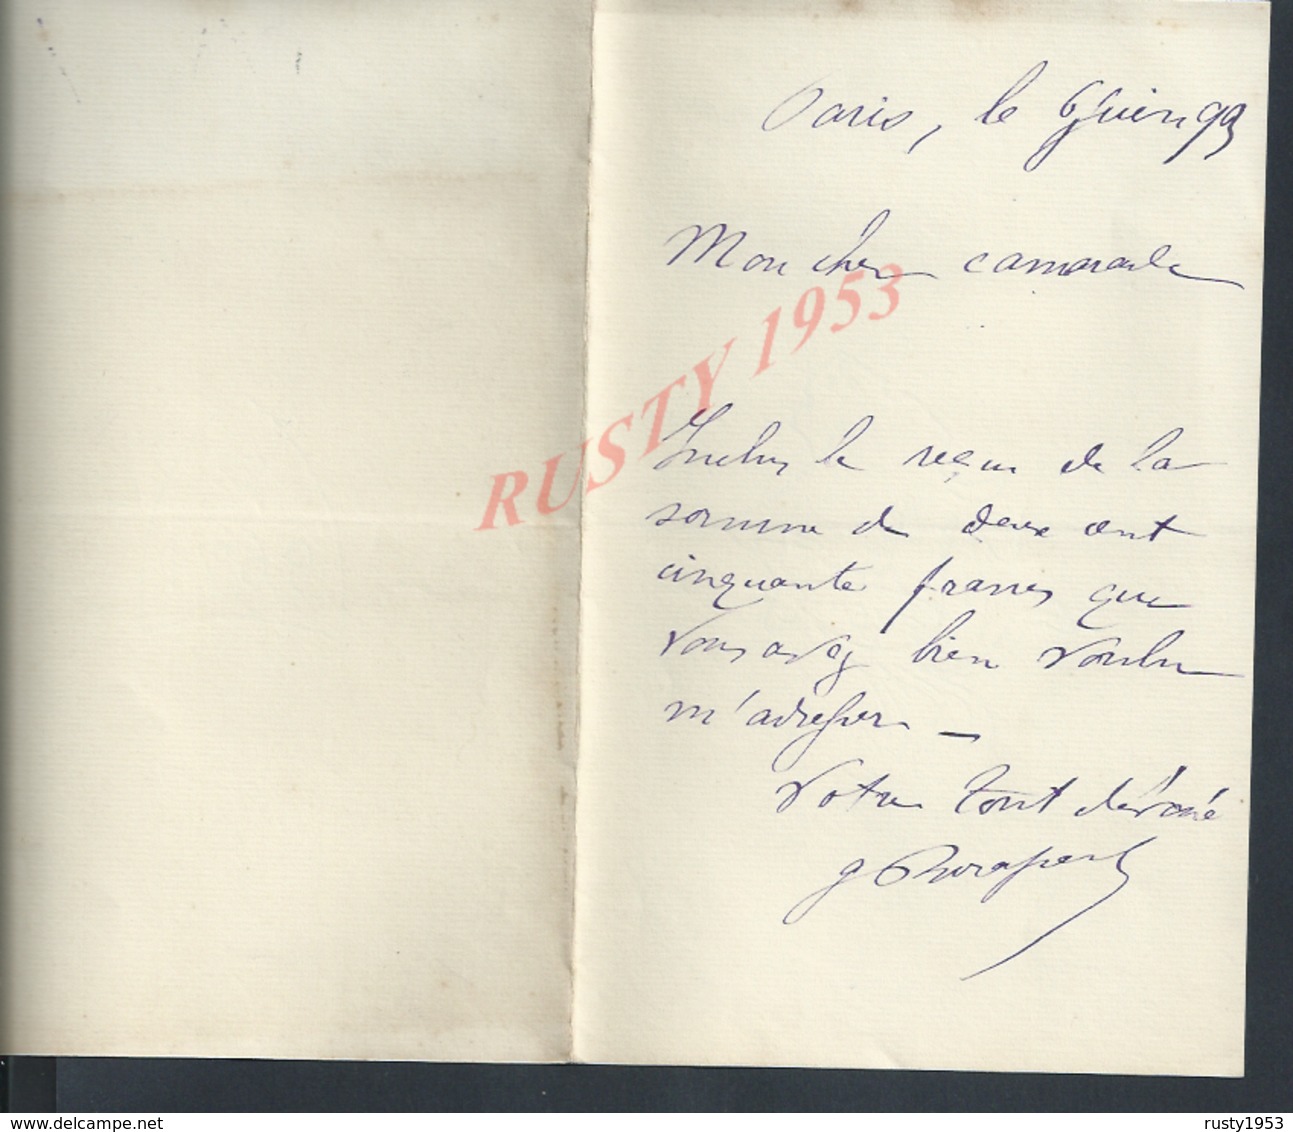 Paris, le 6 Juin 99
Mon cher camarade
RUSTY 1953
Inclus le reçu de la
somme de deux cent
cinquante francs que
vous avez bien voulu
m'adresser —
Votre tout dévoué
www.delcampe.net
rusty1953